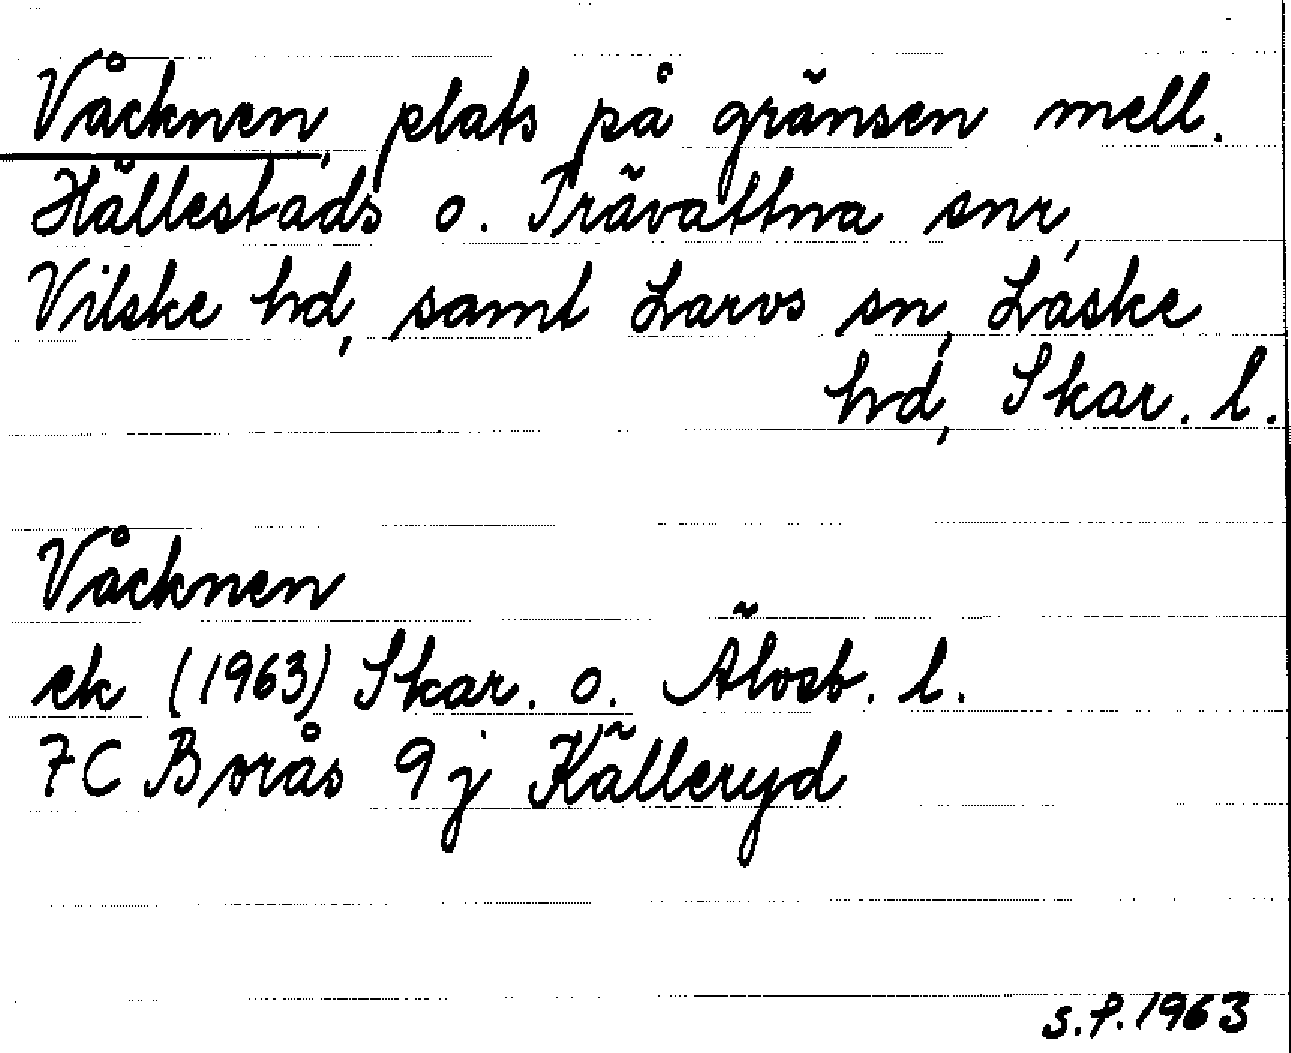 Våcknen, plats på gränsen mell.
Hållestads o. Trävattna snr,
Vilske hd, samt Larvs sn, Laske
hd, Skar. l.
Våcknen
ek (1963) Skar. o. Älvsb. l.
7C Borås 9j Källeryd
S.P. 1963